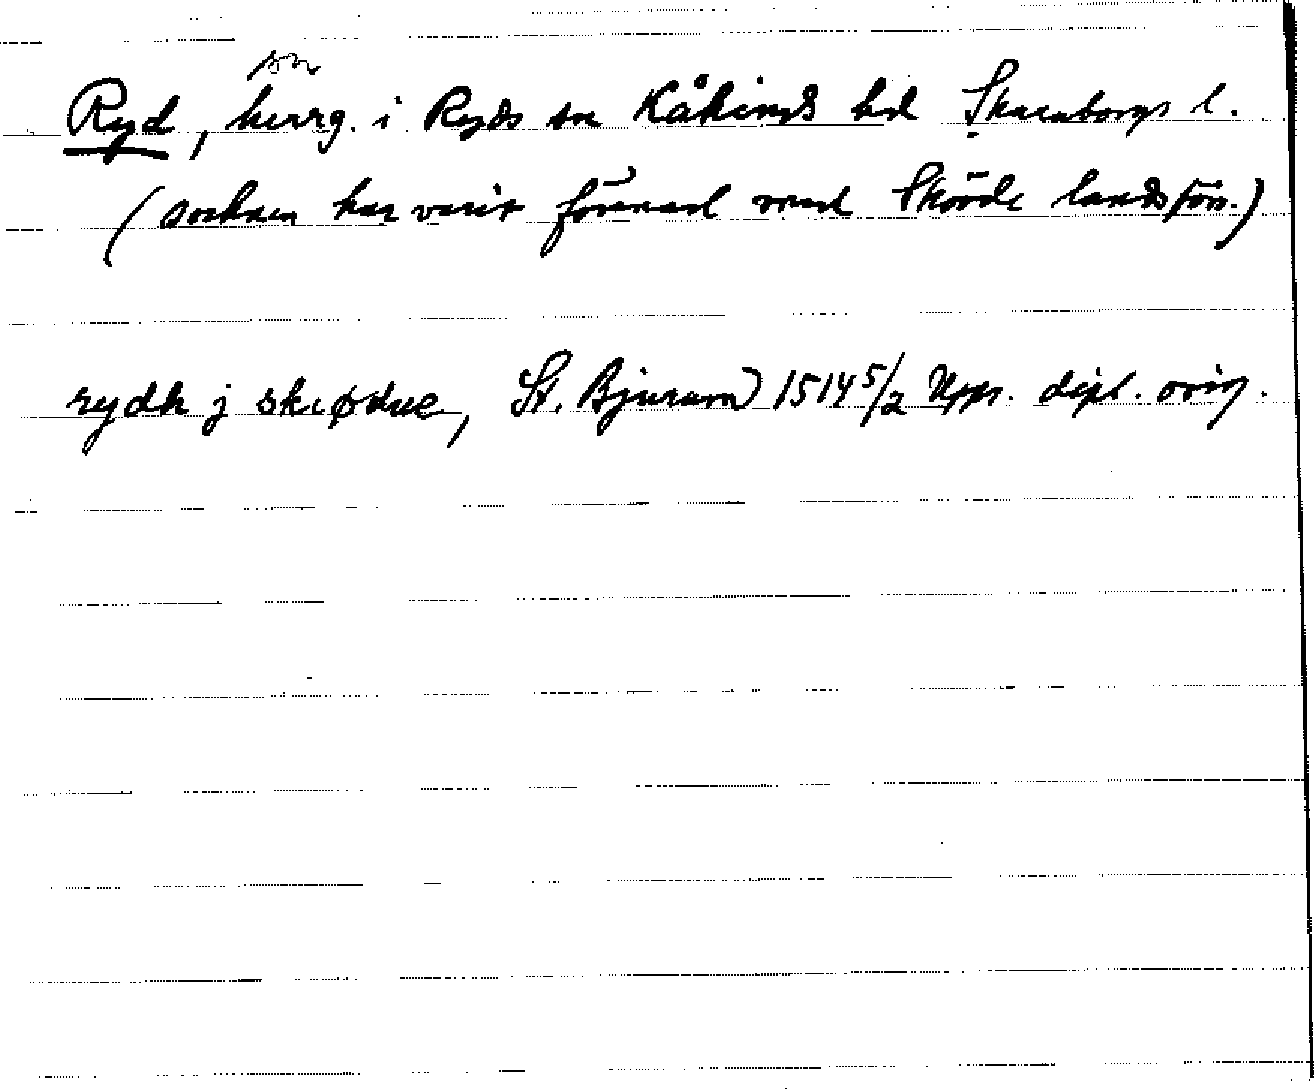 sn
Ryd, herrg. i Ryds sn Kåkinds hd Skaraborgs l.
(socknen har varit förenad med Skövde landsförs.)
rydh j skiødue, St. Bjurum 1514 5/2 Upps. dipl. orig.